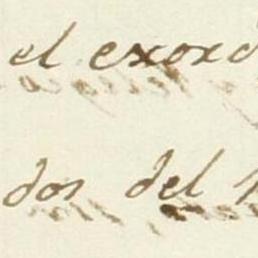 el exord
dos del